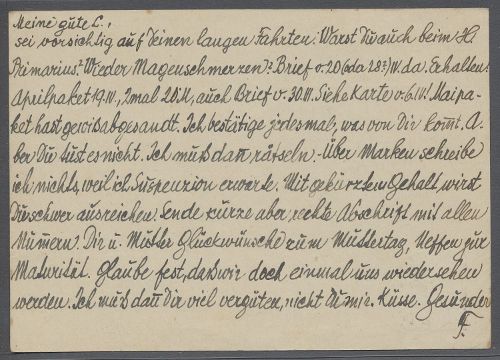 Meine gute L.,
sei vorsichtig auf Deinen langen Fahrten. Warst Du auch beim H.
Primarius? Wieder Magenschmerzen? Brief v. 20 (oda 28?) IV. da. Erhalten:
Aprilpaket 19.IV., 2mal 20 M, auch Brief v. 30.III. Siehe Karte v. 6.IV! Maipa-
ket hast gewiß abgesandt. Ich bestätige jedesmal, was von Dir komt. A-
ber Du tust es nicht. Ich muß dañ rätseln. - Über Marken schreibe
ich nichts, weil ich Suspension erwarte. Mit gekürzten Gehalt wirst
Du schwer ausreichen. Sende kurze aber rechte Abschrift mit allen
Numern. Dir u. Mutter Glückwünsche zum Muttertag, Neffen zur
Maturität. Glaube fest, daß wir doch einmal uns wiedersehen
werden. Ich muß dañ Dir viel vergüten, nicht Du mir. Küsse. Gesunder
F.